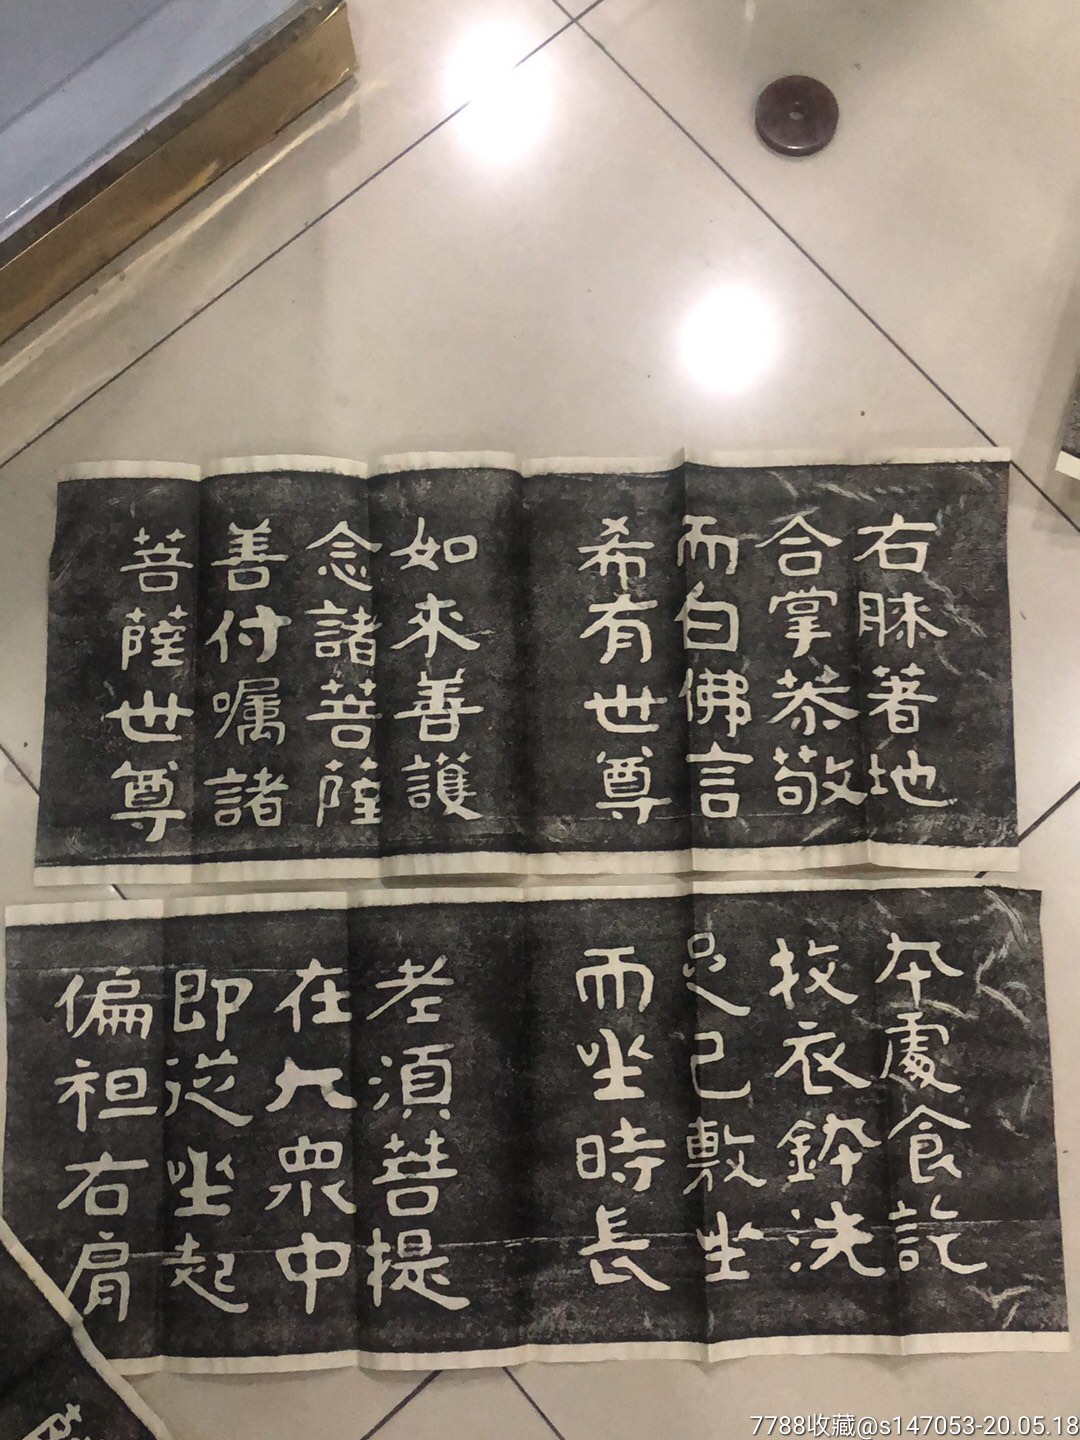 右膝著地
合掌恭敬
而白佛言
希有世尊
如來善護
念諸菩薩
善付嘱諸
菩薩世尊
本處食訖
收衣鉢洗
足已敷坐
而坐時長
老須菩提
在大眾中
即從坐起
偏袒右肩
7788收藏@s147053-20.05.18